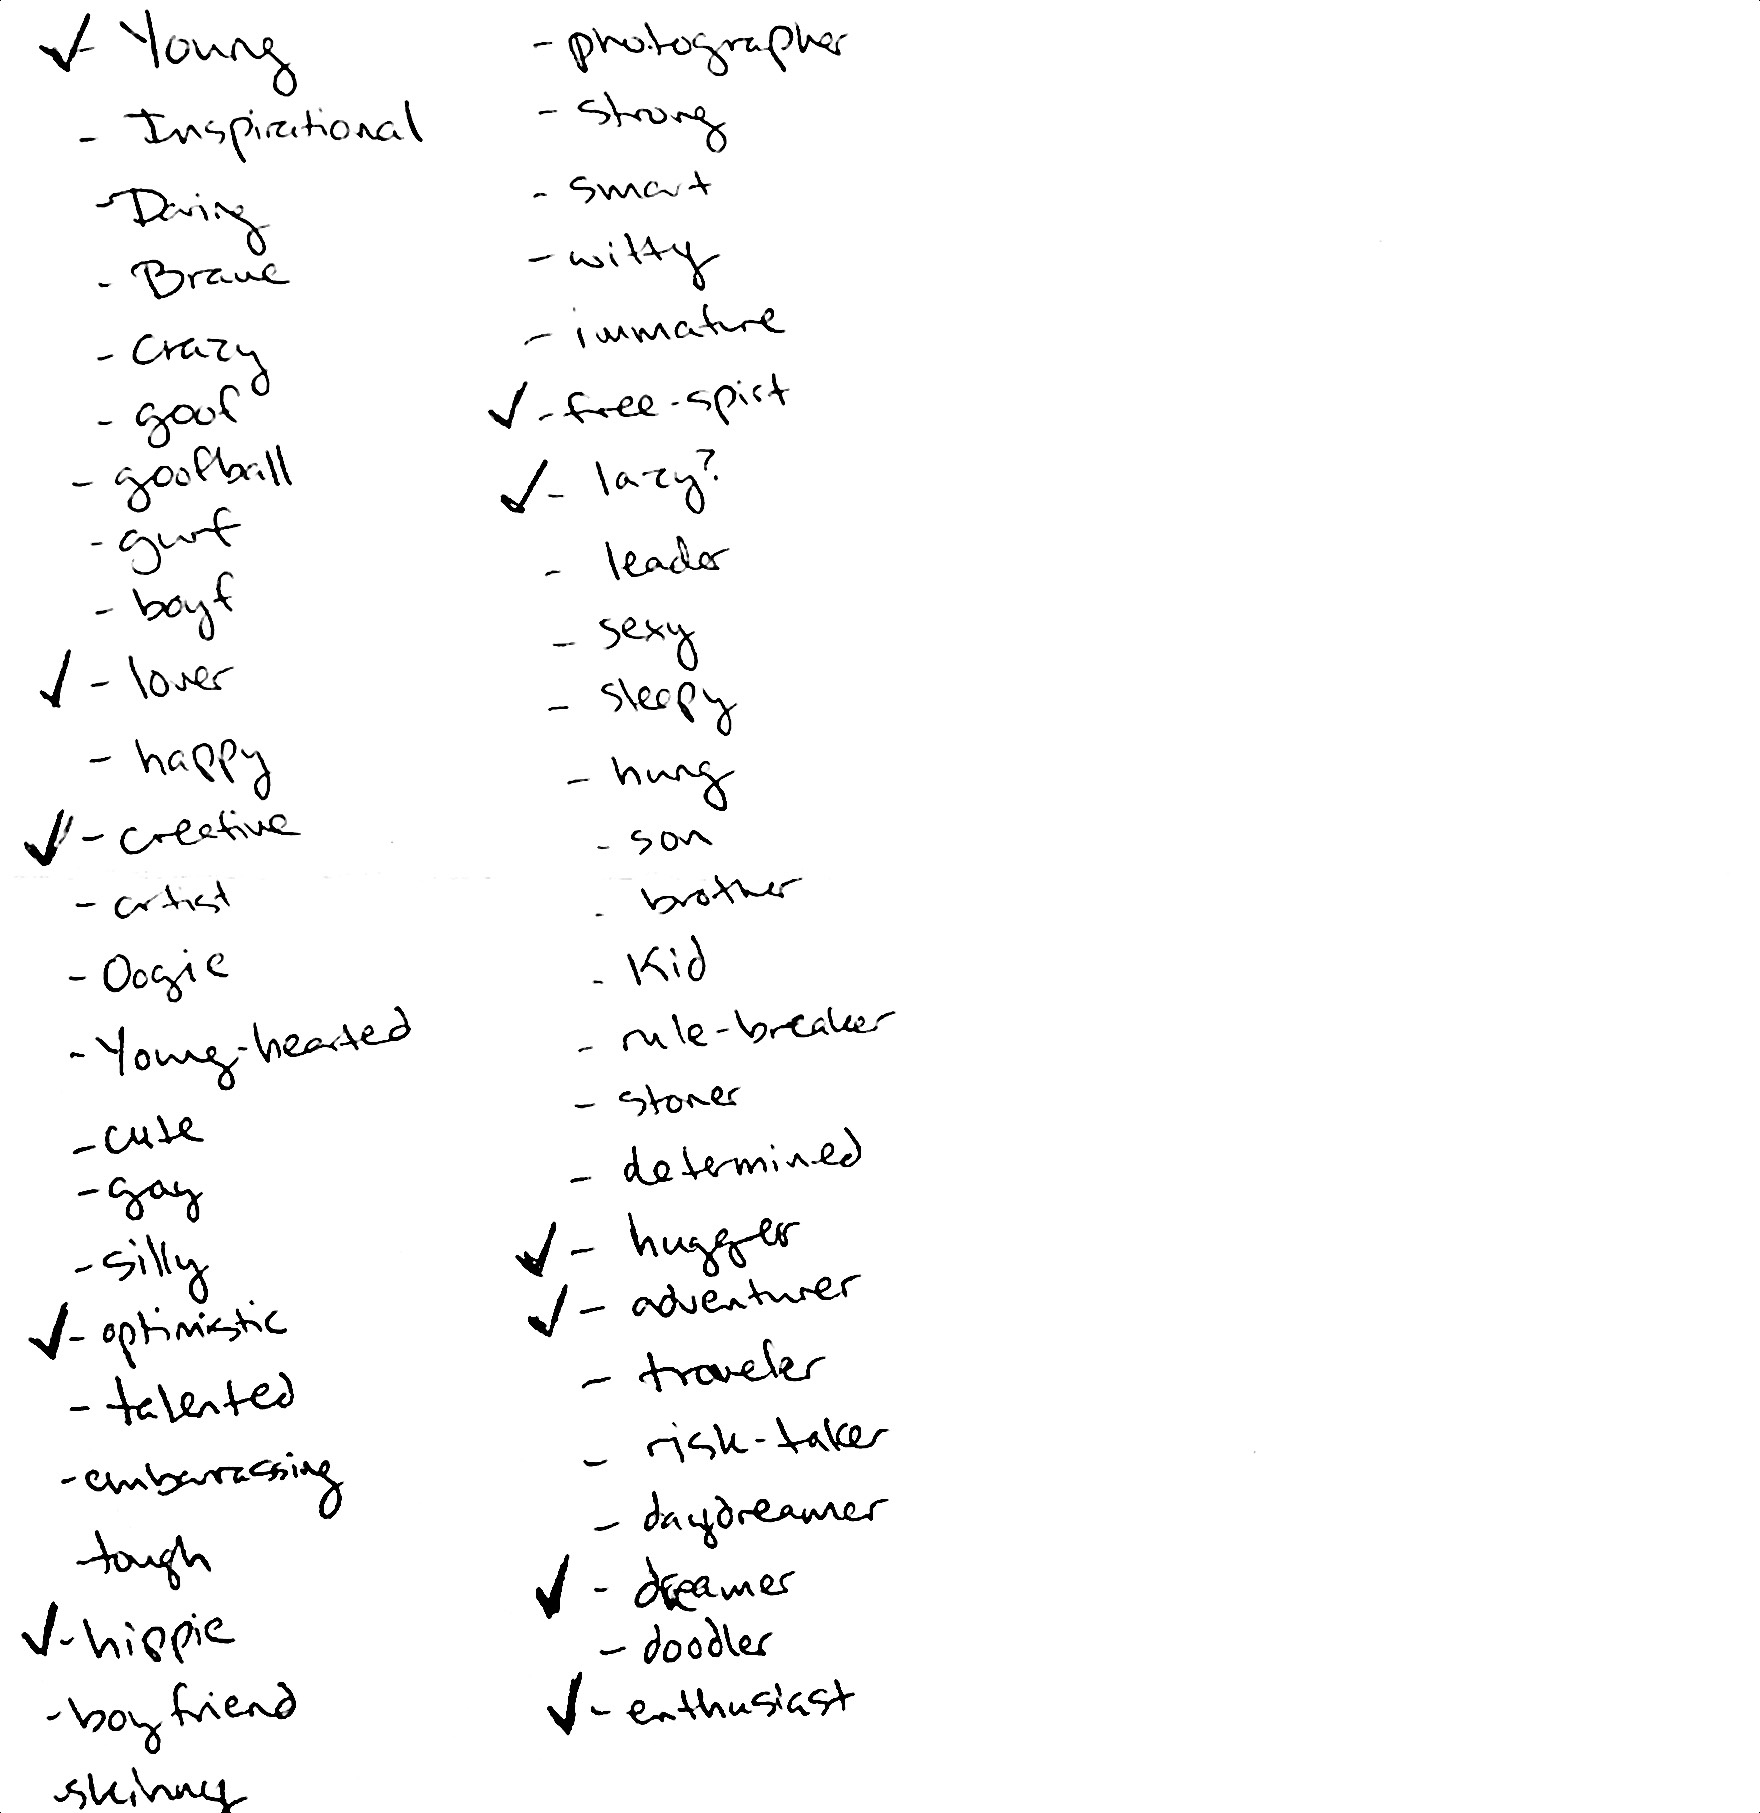 ✓- Young
- Inspirational
- Daring
- Brave
- Crazy
- goof
- goofball
- gurf
- boyf
✓ - lover
- happy
✓ - creative
- artist
- Oogie
- Young-hearted
- cute
- gay
- silly
✓ - optimistic
- talented
- embarrassing
- tough
✓ - hippie
- boyfriend
- skinny
- photographer
- strong
- smart
- witty
- immature
✓ - free-spirt
✓ - lazy?
- leader
- sexy
- sleepy
- hung
- son
- brother
- Kid
- rule-breaker
- stoner
- determined
✓ - hugger
✓ - adventurer
- traveler
- risk-taker
- daydreamer
✓ - dreamer
- doodler
✓ - enthusiast